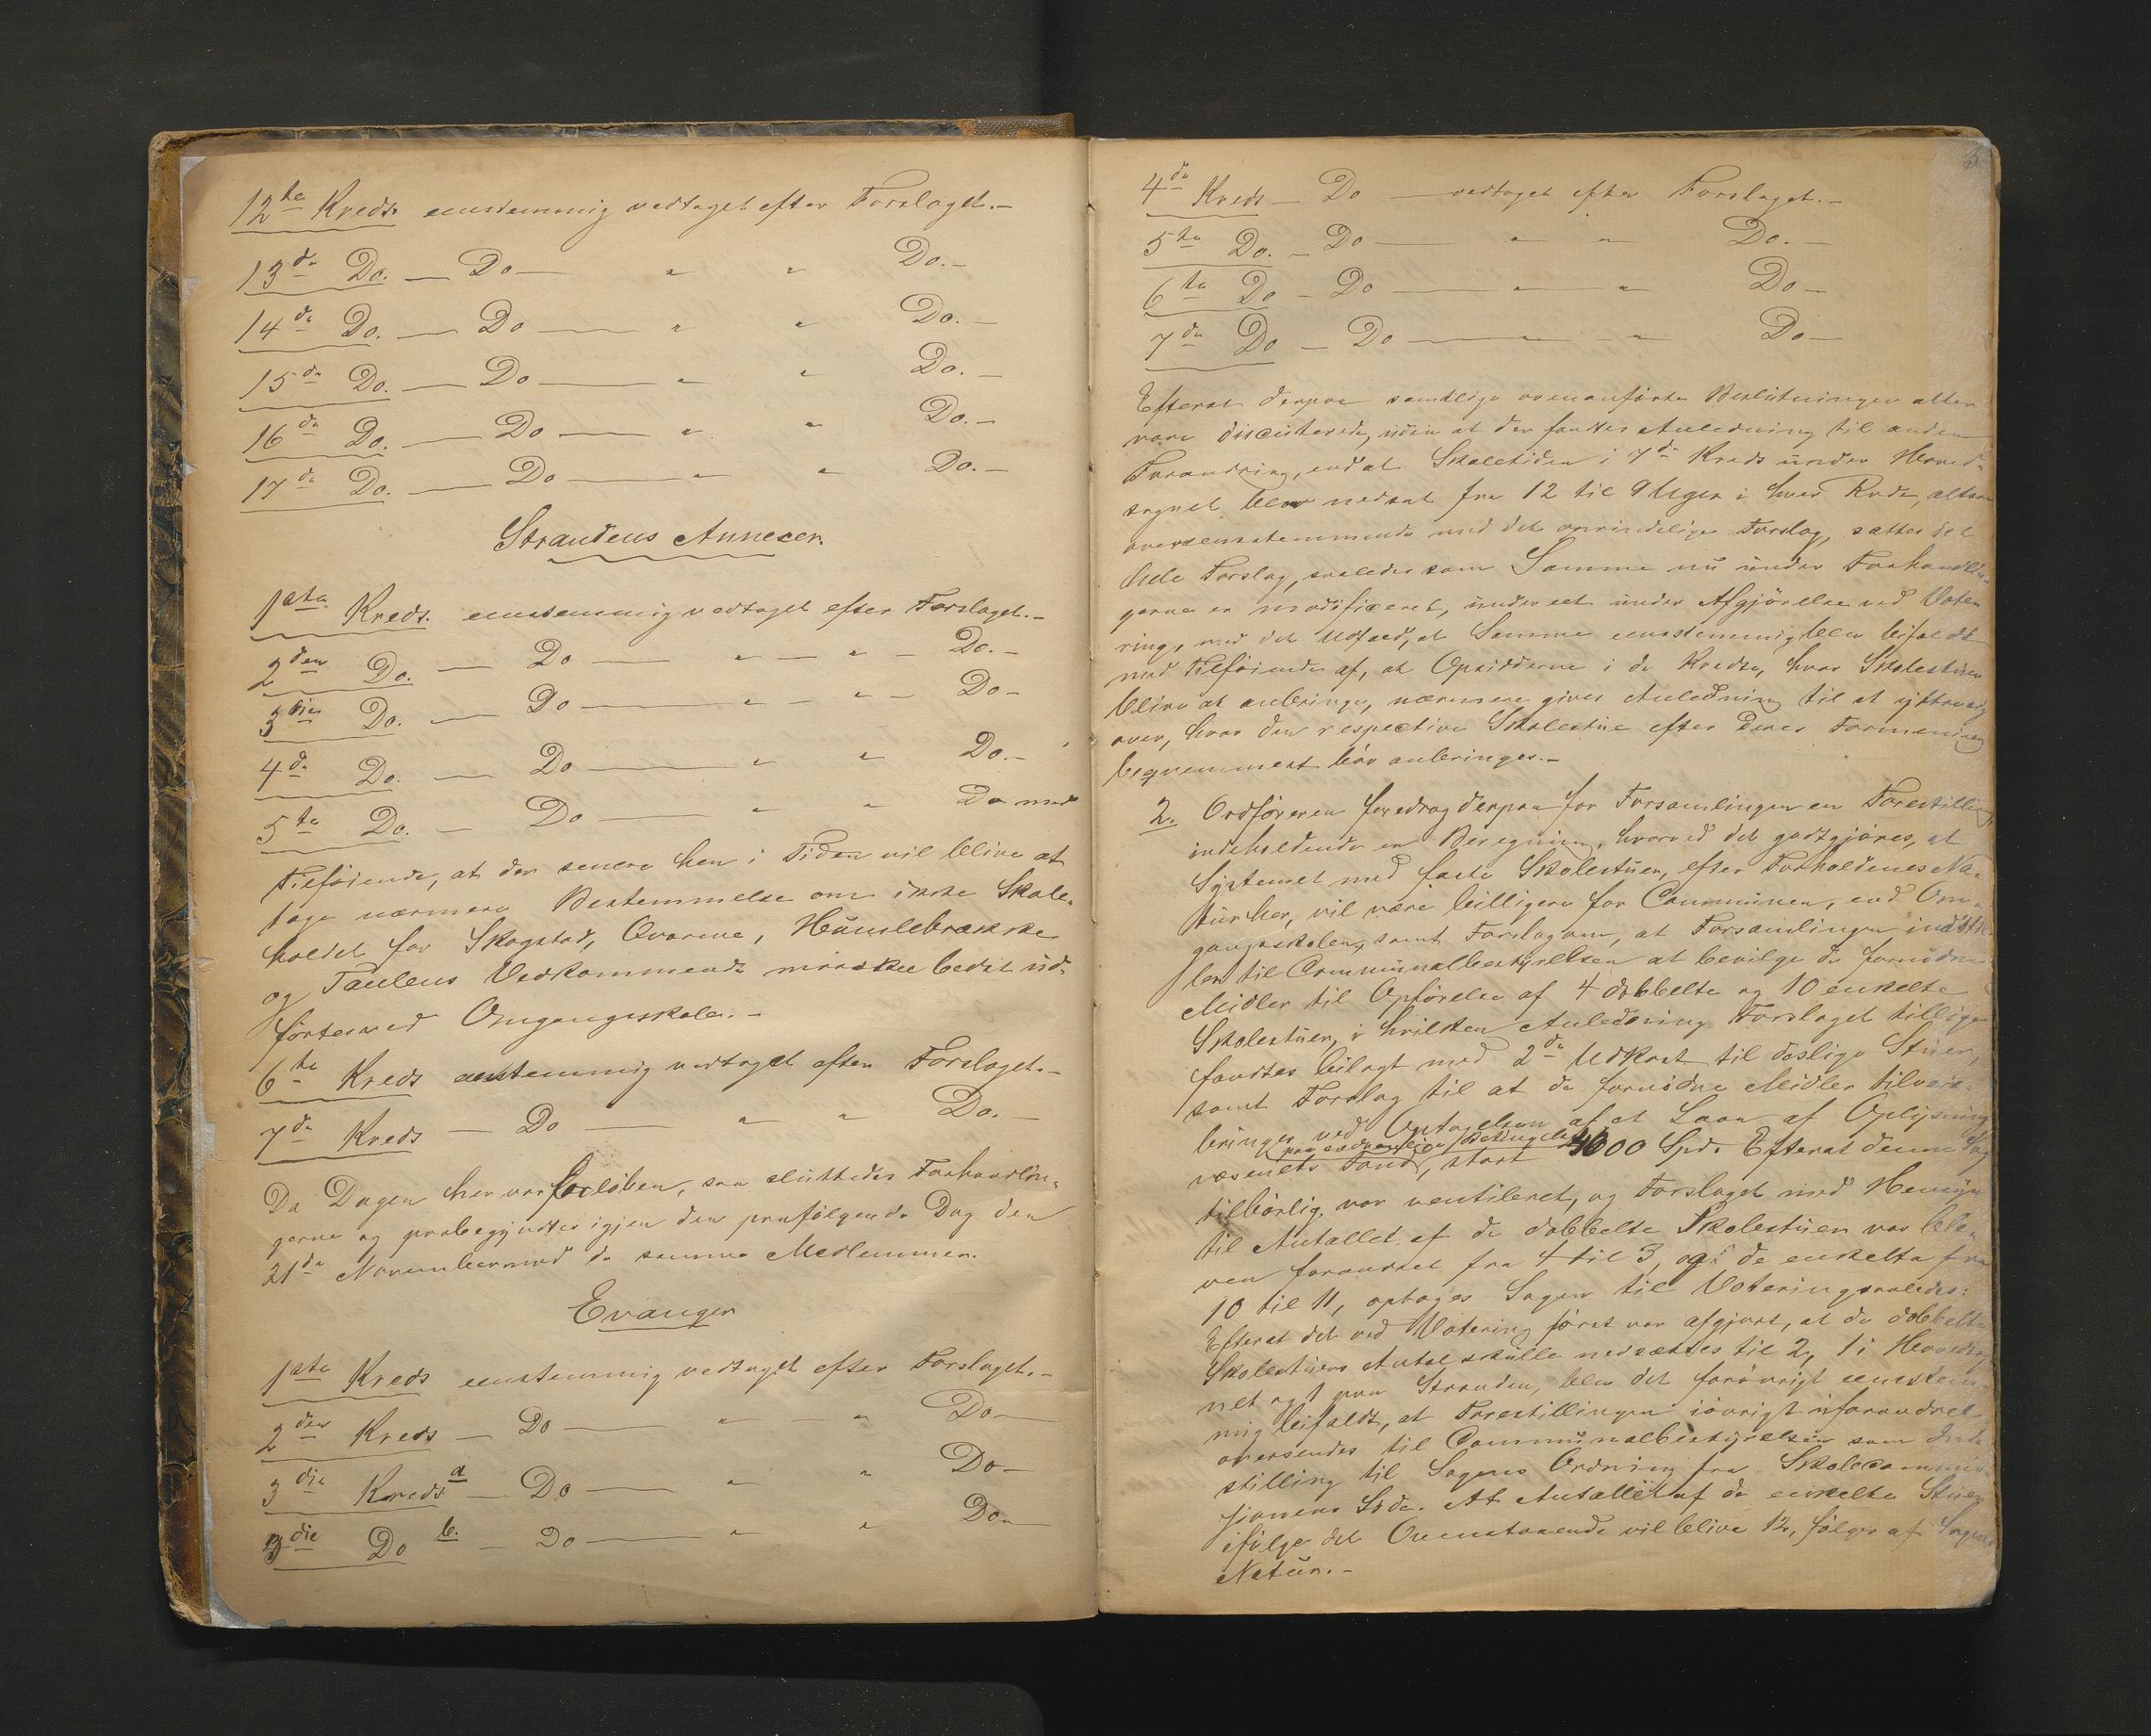 12te Kreds eenstemmig vedtaget efter Forslaget.-
13de Do. — Do — " " Do.-
14de Do. — Do — " " Do.-
15de Do. — Do — " " Do.-
16de Do. — Do — " " Do.-
17de Do. — Do — " " Do.-
Strandens Annexer.
1ste Kreds. eenstemmig vedtaget efter Forslaget.-
2den Do. — Do — " — " — Do.-
3die Do. — Do — " — " — Do-
4de Do. — Do — " " Do.-
5te Do. — Do — " " Do med
Tilføiende, at der senere hen i Tiden vil blive at
tage nærmere Bestemmelse om ikke Skole-
holdet for Skogstad, Qvarme, Hünslebrække
og Taulens Vedkommende maaskee bedst üd-
førtes ved Omgangsskole.-
6te Kreds eenstemmig vedtaget efter Forslaget.-
7de Kreds — Do — " " Do.-
Da Dagen her var forløben, saa sluttedes Forhandlin-
gerne og paabegyndtes igjen den paafølgende Dag den
21de November med de samme Medlemmer.
Evanger
1ste Kreds eenstemmig vedtaget efter Forslaget.-
2den Kreds — Do — " — " Do—
3die Kreds a — Do — " " Do—
3die Do b. — Do — " " Do—
3
4de Kreds — Do — vedtaget efter Forslaget.-
5te Do. — Do — " " Do.-
6te Do — Do — " — " Do-
7de Do — Do — " — " Do-
Efterat derpaa samtlige ovenanførte Beslutninger atter
vare discuterede, uden at der fandtes Anledning til anden
Forandring, end at Skoletiden i 7de Kreds ünder Hoved-
sognet blev nedsat fra 12 til 9 Uger i hver Rode, altsaa
overeensstemmende med det oprindelige Forslag, sattes det
hele Forslag, saaledes som Samme nü ünder Forhandlin-
gerne er modificeret, ünder eet ünder Afgjørelse ved Vote-
ring, med det Udfald, at Samme eenstemmig blev bifaldt
med Tilføiende af, at Opsidderne i de Kredse, hvor Skolestuer
blive at anbringe, nærmere gives Anledning til at yttre sig
over, hvor den respective Skolestue efter deres Formening
beqvemmest bør anbringes.-
2. Ordføreren foredrog derpaa for Forsamlingen en Forestilling,
indeholdende en Beregning, hvorved det godtgjøres, at
Systemet med faste Skolestüer, efter Forholdenes Na-
tür her, vil være billigere for Communen, end Om-
gangsskolen, samt Forslag om, at Forsamlingen indstil-
ler til Communalbestyrelsen at bevilge de fornødne
Midler til Opførelse af 4 dobbelte og 10 enkelte
Skolestüer, i hvilken Anledning Forslaget tillige
fandtes bilagt med 2de Udkast til deslige Stüer,
samt Forslag til at de fornødne Midler tilveie-
bringes ved Optagelsen af et Laan af Oplysnings-
paa sædvanlige Betingelser
væsenets Fond, stort 4000 Spd. Efterat denne Sag
tilbørlig var ventileret, og Forslaget med Hensyn
til Antallet af de dobbelte Skolestüer var ble-
ven forandret fra 4 til 3, og de enkelte fra
10 til 11, optoges Sagen til Votering saaledes:
Efterat det ved Votering først var afgjort, at de dobbelte
Skolestuers Antal skulle nedsættes til 2, 1 i Hovedsog-
net og 1 paa Stranden, blev det forøvrigt eenstem-
mig bifaldt, at Forestillingen iøvrigt üforandret
oversendes til Communalbestyrelsen som Ind-
stilling til Sagens Ordning fra Skolecommis-
sionens Side. At Antallet af de enkelte Stüer
ifølge det Ovenstaaende vil blive 12, følger af Sagens
Natür.-